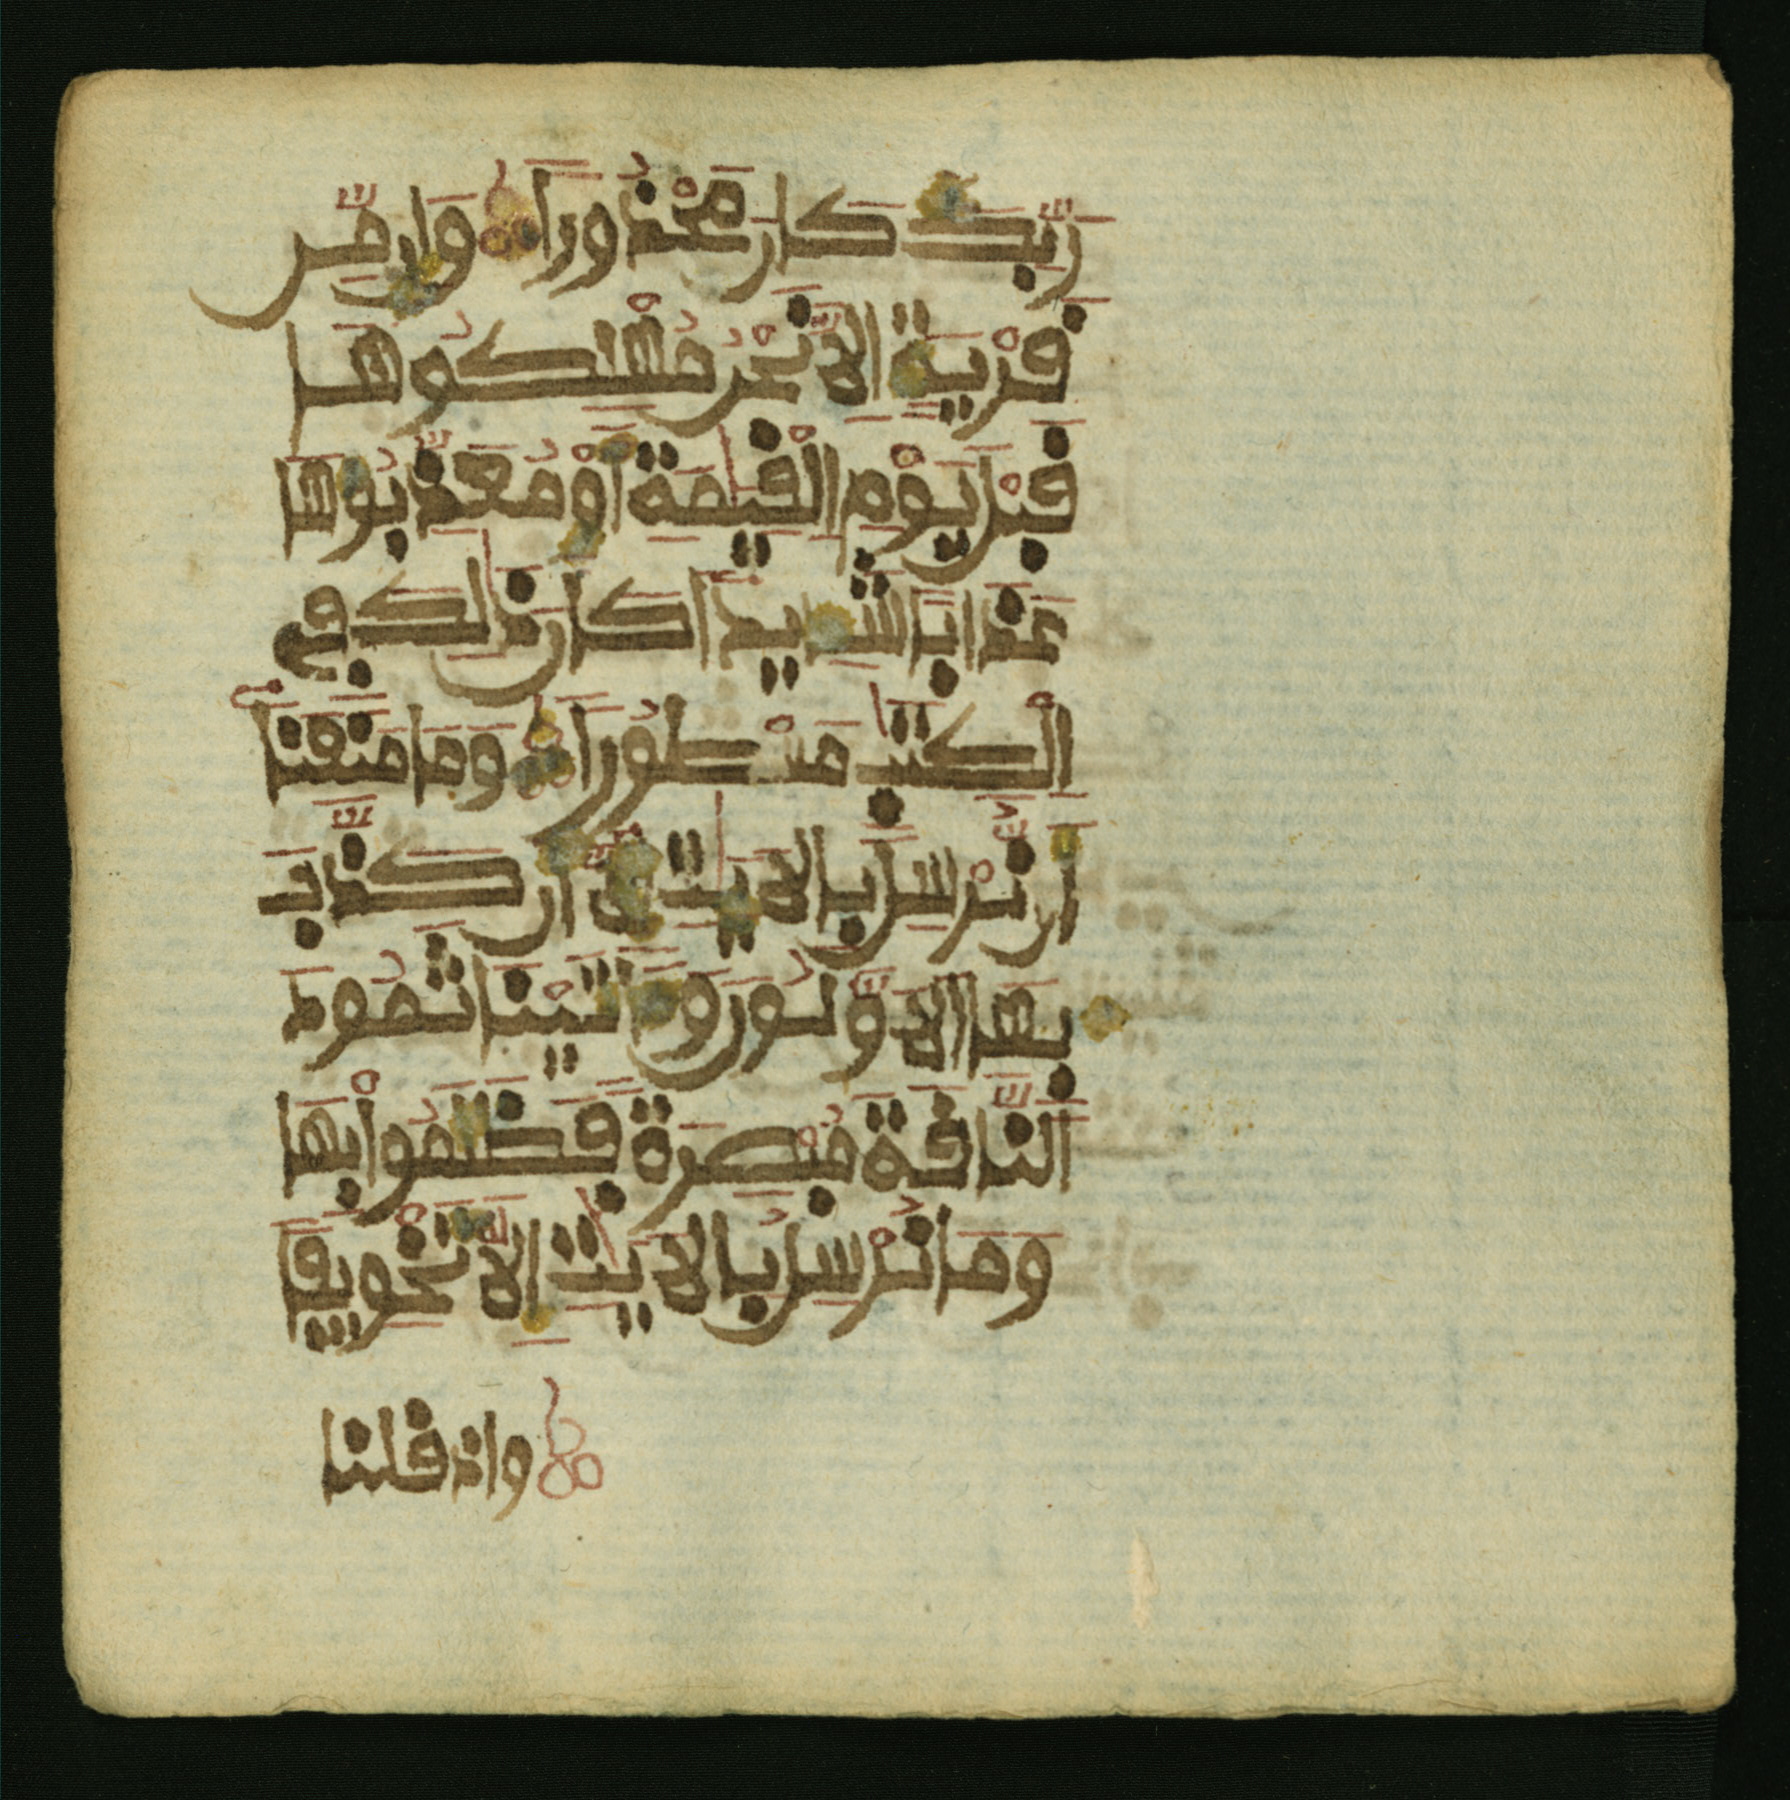 رَبِّكَ كَانَ مَحْذُورًا وَإِن مِّن
قَرْيَةٍ إِلَّا نَحْنُ مُهْلِكُوهَا
قَبْلَ يَوْمِ الْقِيَٰمَةِ أَوْ مُعَذِّبُوهَا
عَذَابًا شَدِيدًا كَانَ ذَٰلِكَ فِي
الْكِتَٰبِ مَسْطُورًا وَمَا مَنَعَنَا
أَن نُّرْسِلَ بِالْأَيَٰتِ إِلَّا أَن كَذَّبَ
بِهَا الْأَوَّلُونَ وَءَاتَيْنَا ثَمُودَ
النَّاقَةَ مُبْصِرَةً فَظَلَمُوا بِهَا
وَمَا نُرْسِلُ بِالْأَيَٰتِ إِلَّا تَخْوِيفًا
واذ قلنا